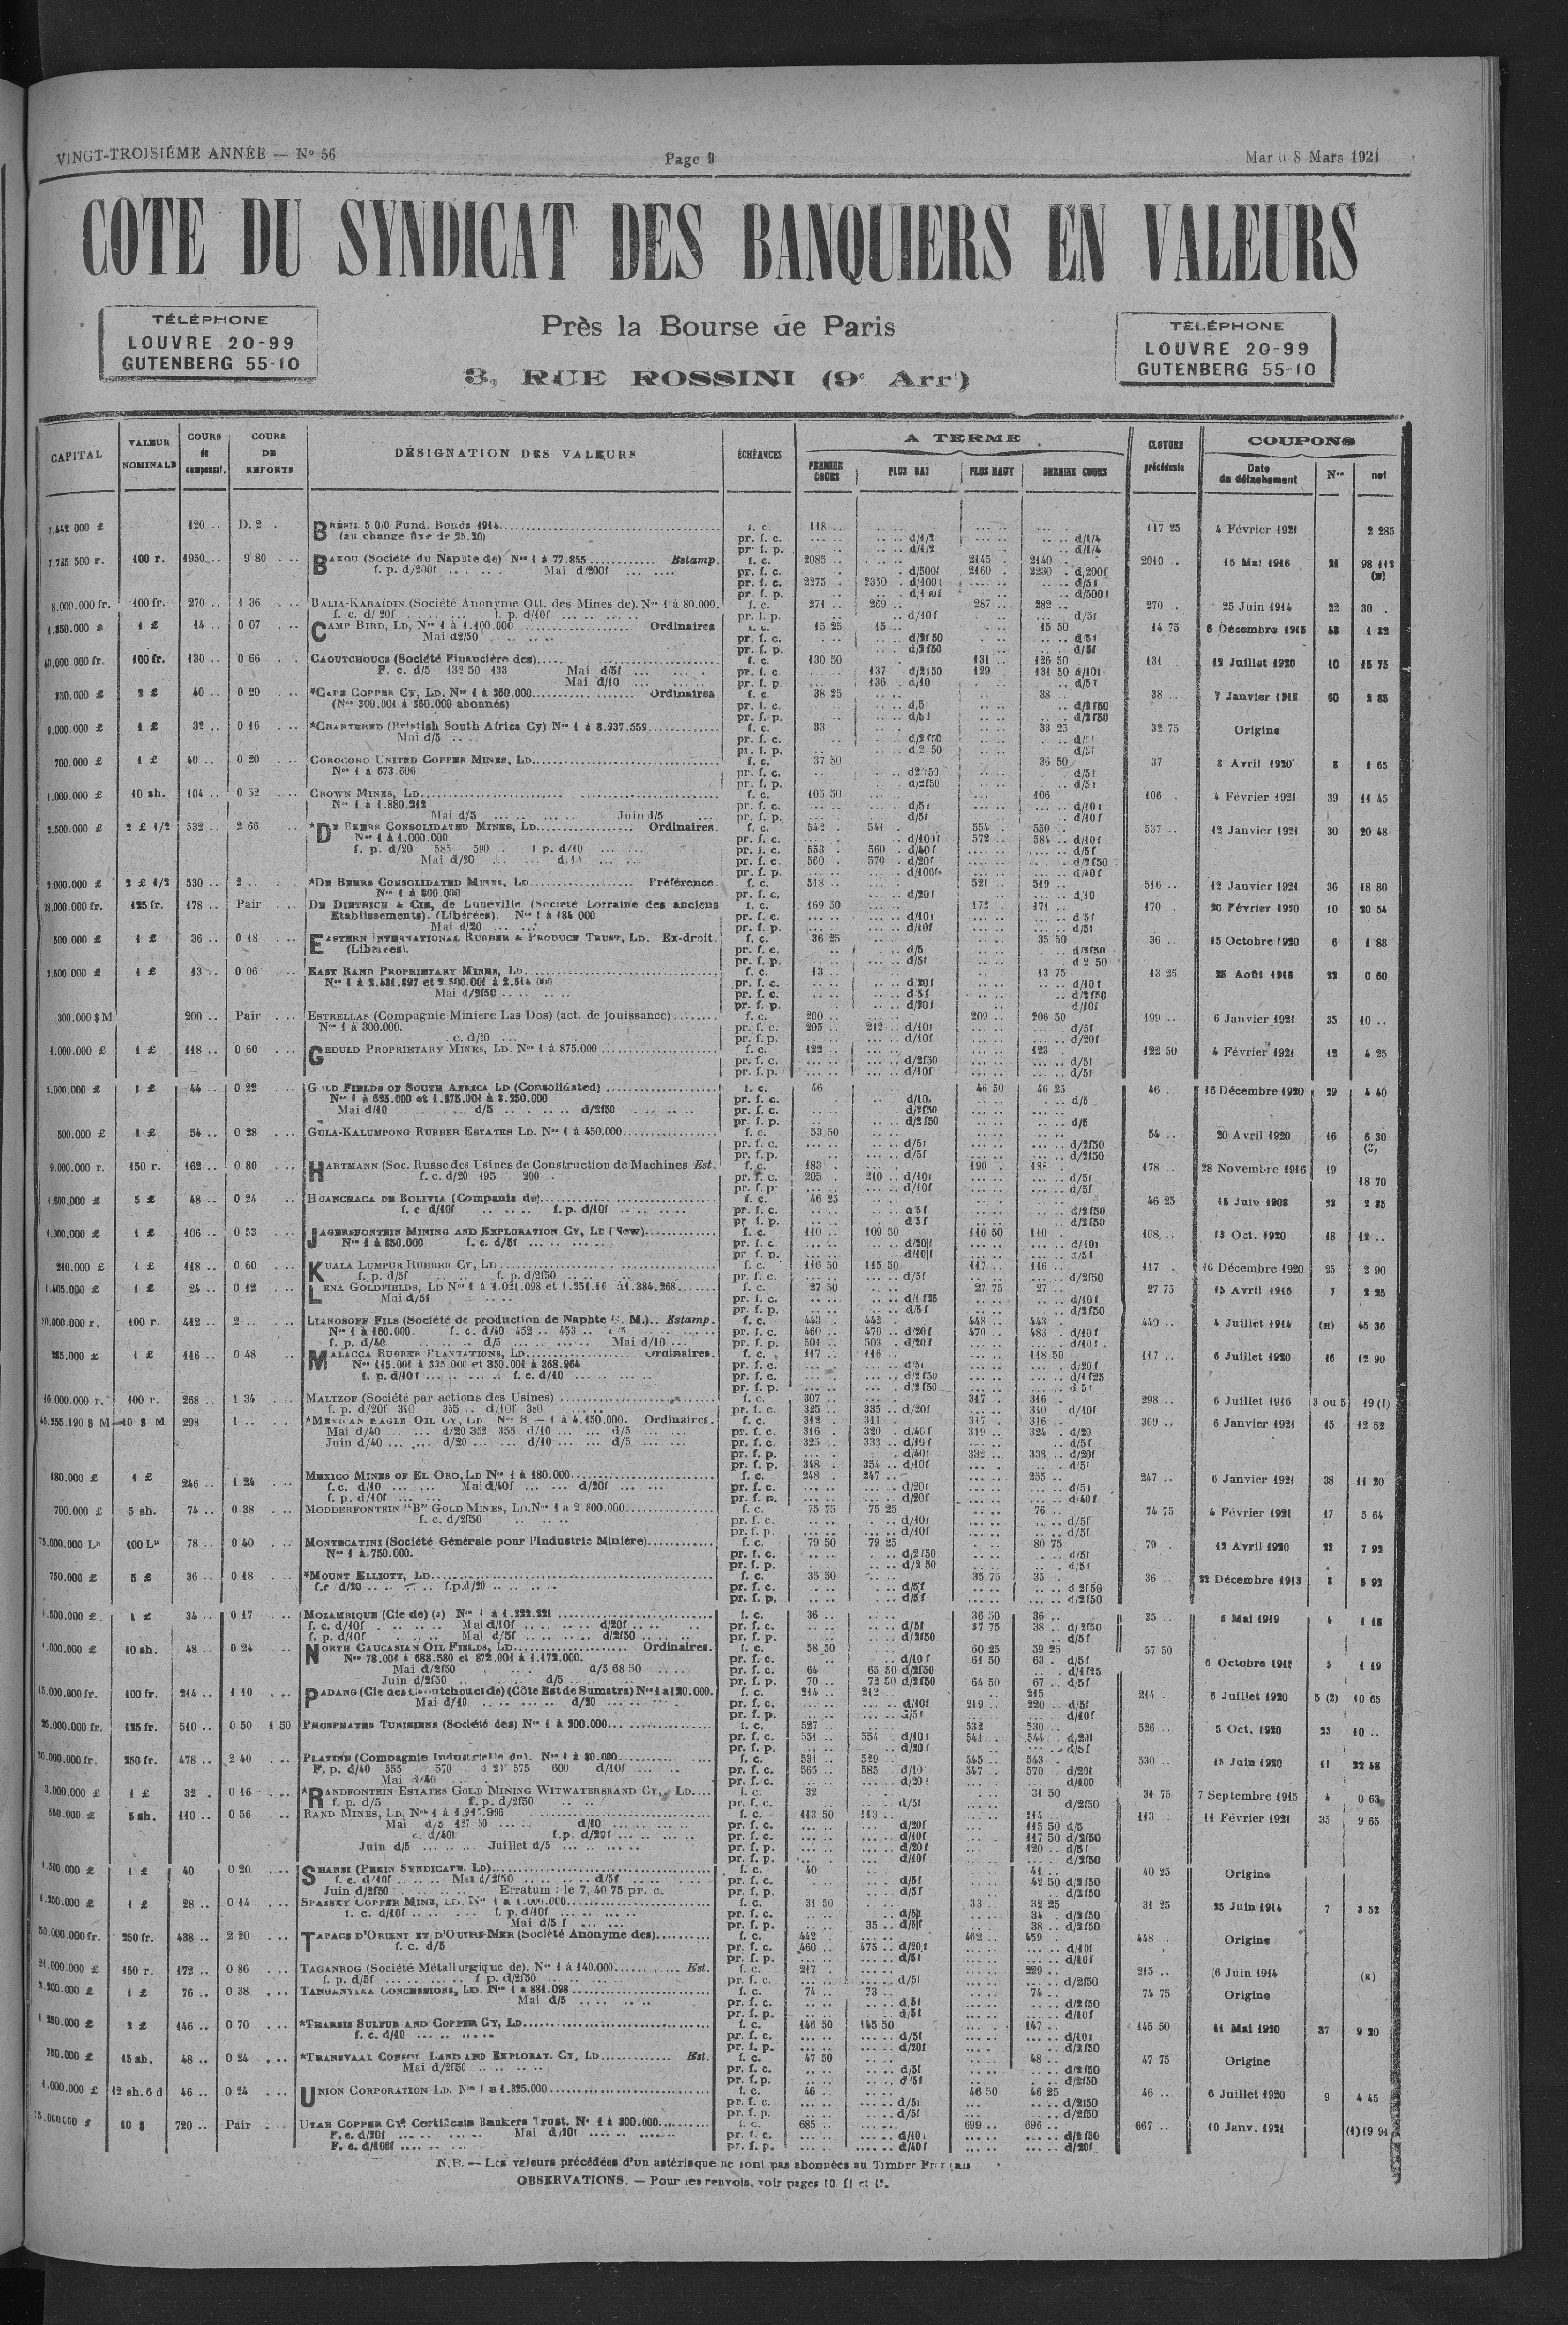 VINGT-TROISIÈME ANNÉE — N° 56
Page 9
8 Mars 1921
COTE DU SYNDICAT DES BANQUIERS EN VALEURS
TÉLÉPHONE
LOUVRE 20-99
GUTENBERG 55-10
Près la Bourse de Paris
3, RUE ROSSINI (9e Arrt)
TÉLÉPHONE
LOUVRE 20-99
GUTENBERG 55-10
CAPITAL
VALEUR NOMINALE
COURS de compensat.
COURS DE REPORTS
DÉSIGNATION DES VALEURS
ÉCHÉANCES
A TERME
PREMIER COURS
PLUS BAS
PLUS HAUT
DERNIER COURS
CLOTURE précédente
COUPONS
Date du détachement
Nos
net
120 .. D. 2 . BRÉSIL 5 0/0 Fund. Bonds 1914 f. c. 118 .. 117 25 4 Février 1921 2 285
(au change fixe de 25.20) pr. f. c. d/1/2 d/1/4
pr. f. p. d/1/2 d/1/4
100 r. 1950 .. 9 80 BAKOU (Société du Naphte de) Nos 1 à 77.855 Estamp. f. c. 2085 .. 2145 . 2140 .. 2010 .. 15 Mai 1916 21
f. p. d/200f Mai d/200f pr. f. c. d/500f 2160 .. 2230 . d/200f
pr. f. c. 2275 .. 2350 . d/100f d/5f
8.000.000 fr. 100 fr. 270 .. 1 36 BALIA-KARAÏDIN (Société Anonyme Ott. des Mines de). Nos 1 à 80.000. f. c. 271 .. 269 .. 287 .. 282 .. 270 . 25 Juin 1914 22 30 .
f. c. d/20f f. p. d/10f pr. f. p. d/10f d/5f
1 £ 14 .. 0 07 CAMP BIRD, LD, Nos 1 à 1.100.000 Ordinaires f. c. 15 25 15 .. 15 50 14 75 6 Décembre 1915
Mai d2/50 pr. f. c. d/2f50 d/5f
pr. f. p. d/2f50 d/5f
100 fr. 130 .. 0 66 CAOUTCHOUCS (Société Financière des) f. c. 130 50 131 .. 126 50 131 12 Juillet 1920 10 15 75
F. c. d/5 132 50 133 Mai d/5f pr. f. c. 137 d/2f50 129 131 50 d/10f
Mai d/10 pr. f. p. 136 . d/10 d/5f
2 £ 40 .. 0 20 *CAPE COPPER CY, LD. Nos 1 à 350.000 Ordinaires f. c. 38 25 38 . 38 .. 60 2 85
(Nos 300.001 à 350.000 abonnés) pr. f. c. d/5 d/2f50
1 £ 32 .. 0 16 *CHARTERED (British South Africa Cy) Nos 1 à 8.937.559 f. c. 33 33 25 32 75 Origine
Mai d/5 pr. f. c. d/2f50
700.000 £ 1 £ 40 .. 0 20 COROCORO UNITED COPPER MINES, LD f. c. 37 50 36 50 37 8 Avril 1920 8 1 65
Nos 1 à 673.600 pr. f. c. d2f50 d/5f
1.000.000 £ 10 sh. 104 .. 0 52 CROWN MINES, LD f. c. 105 50 106 .. 106 .. 4 Février 1921 39 11 45
Nos 1 à 1.880.212 pr. f. c. d/5f d/10f
Mai d/5 Juin d/5 pr. f. p. d/5f d/10f
2.500.000 £ 2 £ 1/2 532 .. 2 66 *DE BEERS CONSOLIDATED MINES, LD Ordinaires. f. c. 542 . 541 . 554 . 550 .. 537 .. 12 Janvier 1921 30 20 48
Nos 1 à 1.000.000 pr. f. c. d/100f 572 .. 584 .. d/10f
f. p. d/20 585 590 . f. p. d/10 pr. f. c. 553 . 560 . d/40f d/5f
Mai d/20 pr. f. c. 560 . 570 . d/20f d/2f50
pr. f. p. d/100f d/40f
2 £ 1/2 530 .. 2 .. *DE BEERS CONSOLIDATED MINES, LD Préférence. f. c. 518 .. 521 .. 519 .. 516 .. 12 Janvier 1921 36 18 80
Nos 1 à 800.000 pr. f. c. d/20f d/10
18.000.000 fr. 125 fr. 178 .. Pair DE DIETRICH & CIE, de Lunéville (Société Lorraine des anciens f. c. 169 50 172 .. 171 .. 170 . 20 Février 1920 10 20 54
Etablissements). (Libérées). Nos 1 à 184 000 pr. f. c. d/10f d/5f
Mai d/20 pr. f. p. d/10f d/5f
500.000 £ 1 £ 36 .. 0 18 EASTERN INTERNATIONAL RUBBER & PRODUCE TRUST, LD. Ex-droit. f. c. 36 25 35 50 36 .. 15 Octobre 1920 6 1 88
(Libérées). pr. f. c. d/5 d/2f50
1 £ 13 .. 0 06 EAST RAND PROPRIETARY MINES, LD f. c. 13 .. 13 75 13 25 25 Août 1916 22 0 60
Mai d/2f50 pr. f. c. d/5f d/2f50
300.000 $ M 200 .. Pair ESTRELLAS (Compagnie Minière Las Dos) (act. de jouissance) f. c. 200 .. 209 .. 206 50 199 .. 6 Janvier 1921 35 10 ..
Nos 1 à 300.000. pr. f. c. 205 .. 212 .. d/10f d/5f
c. d/20 pr. f. p. d/10f d/20f
1.000.000 £ 1 £ 118 .. 0 60 GEDULD PROPRIETARY MINES, LD. Nos 1 à 875.000 f. c. 122 .. 123 . 122 50 4 Février 1921 12 4 25
pr. f. c. d/2f50 d/5f
pr. f. p. d/10f d/5f
1 £ 44 .. 0 22 GOLD FIELDS OF SOUTH AFRICA LD (Consolidated) f. c. 46 46 50 46 25 46 . 16 Décembre 1920 29 4 40
Nos 1 à 625.000 et 1.875.001 à 2.250.000 pr. f. c. d/10. d/5
Mai d/10 d/5 d/2f50 pr. f. c. d/2f50
pr. f. p. d/2f50 d/5
500.000 £ 1 £ 54 .. 0 28 GULA-KALUMPONG RUBBER ESTATES LD. Nos 1 à 450.000 f. c. 53 50 54 .. 20 Avril 1920 16 6 30
pr. f. c. d/5f d/2f50
pr. f. p. d/5f d/2f50
9.000.000 r. 150 r. 162 .. 0 80 HARTMANN (Soc. Russe des Usines de Construction de Machines Est. f. c. 183 . 190 . 188 . 178 .. 28 Novembre 1916 19 18 70
f. c. d/20 195 200 .. pr. f. c. 205 . 210 .. d/10f d/5f
pr. f. p. d/10f d/5f
5 £ 48 .. 0 24 HUANCHACA DE BOLIVIA (Compania de) f. c. 46 25 46 25
f. c d/10f f. p. d/10f pr. f. c. d/2f50
1.000.000 £ 1 £ 106 .. 0 53 JAGERSFONTEIN MINING AND EXPLORATION CY, LD (New) f. c. 110 .. 109 50 110 50 110 . 108 .. 13 Oct. 1920 18 12 ..
Nos 1 à 850.000 f. c. d/5f pr. f. c. d/20f d/10f
210.000 £ 1 £ 118 .. 0 60 KUALA LUMPUR RUBBER CY, LD f. c. 116 50 115 50 117 .. 116 .. 117 . 16 Décembre 1920 25 2 90
f. p. d/5f f. p. d/2f50 pr. f. c. d/5f d/2f50
1.405.000 £ 1 £ 24 .. 0 12 LENA GOLDFIELDS, LD f. c. 27 50 27 75 27 .. 27 75 15 Avril 1916 7 2 25
Mai d/5f pr. f. c. d/1f25 d/10f
100 r. 412 .. 2 .. LIANOSOFF FILS (Société de production de Naphte Estamp. f. c. 443 . 442 . 448 .. 443 . 440 .. 4 Juillet 1914 45 36
Nos 1 à 160.000. f. c. d/40 452 .. 453 pr. f. c. 460 .. 470 .. d/20f 470 . 483 .. d/10f
f. p. d/40 d/5 Mai d/10 pr. f. p. 501 .. 503 . d/20f d/40f
1 £ 116 .. 0 48 MALACCA RUBBER PLANTATIONS, LD Ordinaires. f. c. 117 .. 116 . 118 50 117 .. 6 Juillet 1920 16 12 90
Nos 115.001 à 335.000 et 350.001 à 368.964 pr. f. c. d/5f d/20f
f. p. d/10f f. c. d/10 pr. f. c. d/2f50 d/1f25
16.000.000 r. 100 r. 268 .. 1 34 MALTZOF (Société par actions des Usines) f. c. 307 .. 317 . 316 . 298 .. 6 Juillet 1916 3 ou 5 19 (1)
f. p. d/20f 340 355 .. d/10f 350 pr. f. c. 325 .. 335 . d/20f 340 . d/10f
10 $ M 298 1 .. *MEXICAN EAGLE OIL CY, LD. Nos B — 1 à 4.150.000. Ordinaires. f. c. 312 . 311 . 317 . 316 . 309 .. 6 Janvier 1921 15 12 52
Mai d/40 d/20 352 355 d/10 d/5 pr. f. c. 316 . 320 . d/40f 319 .. 324 . d/20
Juin d/40 d/20 d/10 d/5 pr. f. c. 325 .. 333 .. d/10f d/5f
pr. f. p. d/40f 332 .. 338 .. d/20f
pr. f. p. 348 . 354 .. d/10f d/5f
180.000 £ 1 £ 246 .. 1 24 MEXICO MINES OF EL ORO, LD Nos 1 à 180.000 f. c. 248 . 247 .. 255 .. 247 .. 6 Janvier 1921 38 11 20
f. c. d/10 Mai d/40f d/20f pr. f. c. d/20f d/5f
f. p. d/10f pr. f. p. d/20f d/40f
700.000 £ 5 sh. 74 .. 0 38 MODDERFONTEIN "B" GOLD MINES, LD. Nos 1 à 2 800.000 f. c. 75 75 75 25 76 .. 74 75 4 Février 1921 17 5 64
f. c. d/2f50 pr. f. c. d/10f d/5f
pr. f. p. d/10f d/5f
100 L" 78 .. 0 40 MONTECATINI (Société Générale pour l'Industrie Minière) f. c. 79 50 79 25 80 75 79 . 12 Avril 1920 22 7 92
Nos 1 à 750.000. pr. f. c. d/2f50 d/5f
pr. f. p. d/2 50 d/5f
750.000 £ 5 £ 36 .. 0 18 *MOUNT ELLIOTT, LD f. c. 35 50 35 75 35 . 36 .. 22 Décembre 1913 8 5 92
f.c d/20 f.p.d/20 pr. f. c. d/5f d/2f50
pr. f. p. d/5f d/2f50
1 £ 34 .. 0 17 MOZAMBIQUE (Cie de) f. c. 36 .. 36 50 36 .. 35 .. Mai 1919 4 1 18
f. c. d/10f Mai d/10f d/20f pr. f. c. d/5f 37 75 38 .. d/2f50
f. p. d/10f Mai d/5f d/2f50 pr. f. p. d/2f50 d/5f
1.000.000 £ 10 sh. 48 .. 0 24 NORTH CAUCASIAN OIL FIELDS, LD Ordinaires. f. c. 58 50 60 25 59 25 57 50 5 1 19
Nos 78.001 à 688.580 et 872.001 à 1.172.000. pr. f. c. d/10f 61 50 63 . d/5f
Mai d/2f50 d/5 68 50 pr. f. c. 64 65 50 d/2f50 d/1f25
Juin d/2f50 d/5 pr. f. p. 70 .. 72 50 d/2f50 64 50 67 .. d/5f
15.000.000 fr. 100 fr. 214 .. 1 10 PADANG (Cie des Caoutchoucs de) (Côte Est de Sumatra) Nos 1 à 120.000. f. c. 214 .. 212 .. 215 214 . 6 Juillet 1920 5 (2) 10 65
Mai d/10 d/20 pr. f. c. d/10f 219 .. 220 .. d/5f
125 fr. 510 .. 0 50 1 50 PHOSPHATES TUNISIENS (Société des) Nos 1 à 200.000 f. c. 527 .. 532 530 .. 526 .. 5 Oct. 1920 23 10 ..
pr. f. c. 551 .. 554 . d/10f 541 . 544 . d/20f
20.000.000 fr. 250 fr. 478 .. 2 40 PLATINE (Compagnie Industrielle du). Nos 1 à 80.000 f. c. 531 . 529 .. 545 .. 543 . 530 .. 15 Juin 1920 11 22 48
F. p. d/40 555 570 . 575 600 d/10f pr. f. c. 565 .. 585 . d/10 547 .. 570 . d/20f
Mai d/40
1 £ 32 . 0 16 *RANDFONTEIN ESTATES GOLD MINING WITWATERSRAND CY, LD f. c. 32 31 50 31 75 7 Septembre 1915 4 0 63
f. p. d/5 f. p. d/2f50 pr. f. c. d/5f d/2f50
5 sh. 110 .. 0 56 RAND MINES, LD f. c. 113 50 113 .. 114 .. 113 .. 11 Février 1921 35 9 65
Mai d/5 127 50 d/10 pr. f. c. d/20f 115 50 d/5
c. d/40f f.p. d/20f pr. f. c. d/10f 117 50 d/2f50
Juin d/5 Juillet d/5 pr. f. p. d/20f 120 .. d/5f
pr. f. p. d/10f d/2f50
1 £ 40 0 20 SHANSI (PEKIN SYNDICATE, LD) f. c. 40 41 .. 40 25 Origine
f. c. d/10f Mai d/2f50 d/5f pr. f. c. d/5f 42 50 d/2f50
Juin d/2f50 Erratum : le 7, 40 75 pr. c. pr. f. p. d/5f d/2f50
1.250.000 £ 1 £ 28 .. 0 14 SPASSKY COPPER MINE, LD f. c. 31 50 33 .. 32 25 31 25 25 Juin 1914 7 3 52
f. c. d/10f f. p. d/10f pr. f. c. d/5f 34 . d/2f50
Mai d/5 f pr. f. p. 35 .. d/5f 38 .. d/2f50
250 fr. 438 .. 2 20 TABACS D'ORIENT ET D'OUTRE-MER (Société Anonyme des) f. c. 442 . 462 .. 459 . 448 . Origine
f. c. d/5 pr. f. c. 460 .. 475 .. d/20f d/10f
pr. f. p. d/5f d/10f
21.000.000 £ 150 r. 172 .. 0 86 TAGANROG (Société Métallurgique de). Nos 1 à 140.000 Est. f. c. 217 .. 229 .. 215 .. 6 Juin 1914 (K)
f. p. d/5f f. p. d/2f50 pr. f. c. d/5f d/2f50
1 £ 76 .. 0 38 TANGANYIKA CONCESSIONS, LD. Nos 1 à 881.098 f. c. 74 .. 73 .. 74 .. 74 75 Origine
Mai d/5 pr. f. c. d/5f d/2f50
pr. f. p. d/5f d/10f
2 £ 146 .. 0 70 *THARSIS SULFUR AND COPPER CY, LD f. c. 146 50 145 50 147 .. 145 50 11 Mai 1920 37 9 20
f. c. d/10 pr. f. c. d/5f d/10f
pr. f. p. d/20f d/2f50
15 sh. 48 .. 0 24 *TRANSVAAL CONSOL LAND AND EXPLORAT. CY, LD Est. f. c. 47 50 48 .. 47 75 Origine
Mai d/2f50 pr. f. c. d/5f d/2f50
pr. f. p. d/5f d/2f50
1.000.000 £ 12 sh. 6 d 46 .. 0 24 UNION CORPORATION LD. Nos 1 à 1.325.000 f. c. 46 .. 46 50 46 25 46 .. 6 Juillet 1920 9 4 45
pr. f. c. d/5f d/2f50
pr. f. p. d/5f d/2f50
10 $ 720 .. Pair UTAH COPPER CY. Certificats Bankers Trust. Nos 1 à 300.000 f. c. 685 .. 699 .. 696 .. 667 .. 10 Janv. 1921
F. c. d/20f Mai d/10f pr. f. c. d/10f d/2f50
F. c. d/100f pr. f. p. d/40f d/20f
N.B. — Les valeurs précédées d'un astérisque ne sont pas abonnées au Timbre Français
OBSERVATIONS. — Pour les renvois, voir pages 10, 11 et